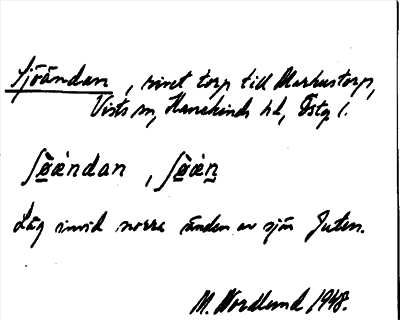 Sjöändan, rivet torp till Markustorp,
Vists sn, Hanekinds hd, Östg l.
ʃø̀ändan, ʃø̀än
Låg invid norra änden av sjön Juten.
M. Nordlund 1948.